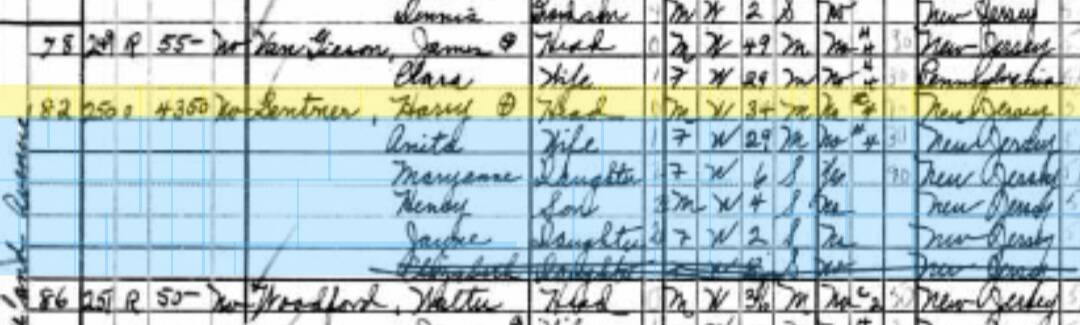 Dennis Grandson M W 2 S No New Jersey
78 249 R 55- No Van Gieson, James Head M W 49 M No H 4 30 New Jersey
Clara Wife 1 F W 29 M No 30 Pennsylvania
82 250 O 4350 No Gentner, Harry Head M W 34 M No New Jersey
Anita Wife 1 F W 29 M No H 4 30 New Jersey
Maryanne Daughter F W 6 S Yes New Jersey
Henry Son M W 4 S No New Jersey
Jayne Daughter F W 2 S No New Jersey
Daughter W S No New Jersey
86 251 R 50- No Woodford, Walter Head M W M No New Jersey